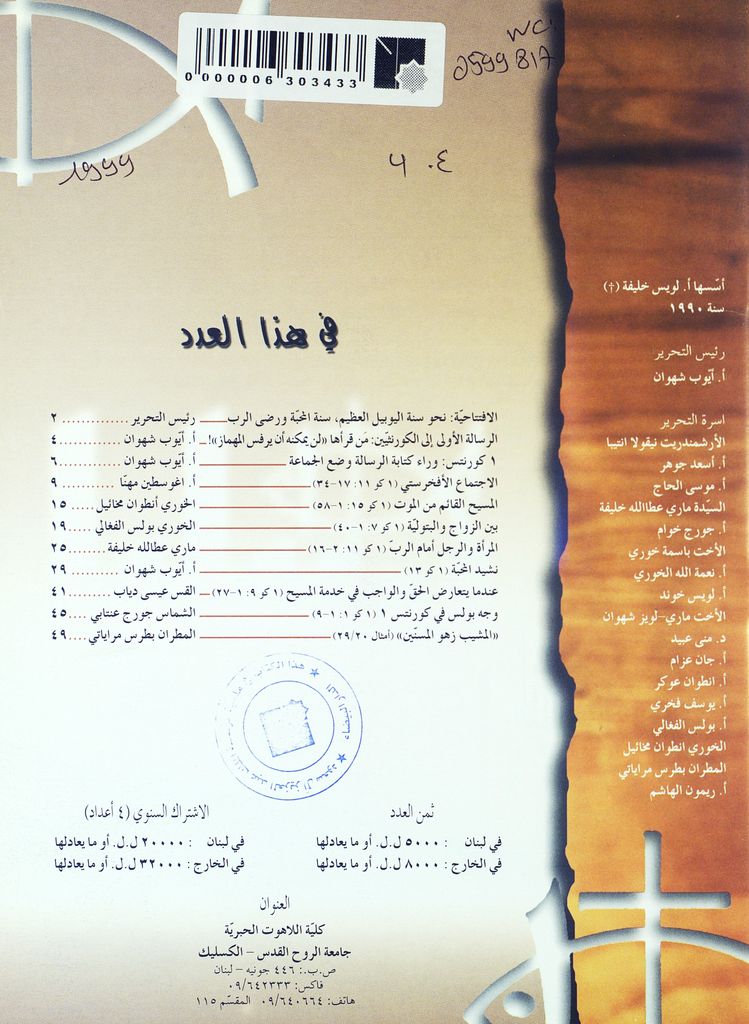 WC:
2599 BIA
0 000006 303433
1999
٤٠٤
في هذا العدد
الافتتاحيّة: نحو سنة اليوبيل العظيم، سنة المحبّة ورضى الرب رئيس التحرير ............ ٢
الرسالة الأولى إلى الكورنثيّين: مَن قرأها «لن يمكنه أن يرفس المهماز»! أ. أيّوب شهوان ........... ٤
١ كورنتس: وراء كتابة الرسالة وضع الجماعة أ. أيّوب شهوان ........... ٦
الاجتماع الأفخرستي (١ كو ١١: ١٧-٣٤) أ. اغوسطين مهنّا ......... ٩
المسيح القائم من الموت (١ كو ١٥: ١-٥٨) الخوري أنطوان مخائيل ..... ١٥
بين الزواج والبتوليّة (١ كو ٧: ١-٤٠) الخوري بولس الفغالي ....... ١٩
المرأة والرجل أمام الربّ (١ كو ١١: ٢-١٦) ماري عطالله خليفة ........ ٢٥
نشيد المحبّة (١ كو ١٣) أ. أيّوب شهوان ......... ٢٩
عندما يتعارض الحقّ والواجب في خدمة المسيح (١ كو ٩: ١-٢٧) القس عيسى دياب ......... ٤١
وجه بولس في كورنتس ١ (١ كو ١: ١-٩) الشماس جورج عنتابي ..... ٤٥
«المشيب زهو المسنّين» (أمثال ٢٠/٢٩) المطران بطرس مراياتي .... ٤٩
ثمن العدد
في لبنان : ٥٠٠٠ ل.ل. أو ما يعادلها
في الخارج : ٨٠٠٠ ل.ل. أو ما يعادلها
الاشتراك السنوي (٤ أعداد)
في لبنان : ٢٠٠٠٠ ل.ل. أو ما يعادلها
في الخارج : ٣٢٠٠٠ ل.ل. أو ما يعادلها
العنوان
كليّة اللاهوت الحبريّة
جامعة الروح القدس – الكسليك
ص.ب.: ٤٤٦ جونيه – لبنان
فاكس: ٠٩/٦٤٢٣٣٣
هاتف: ٠٩/٦٤٠٦٦٤ المقسّم ١١٥
أسّسها أ. لويس خليفة (†)
سنة ١٩٩٠
رئيس التحرير
أ. أيّوب شهوان
اسرة التحرير
الأرشمندريت نيقولا انتيبا
أ. أسعد جوهر
أ. موسى الحاج
السيّدة ماري عطاالله خليفة
أ. جورج خوام
الأخت باسمة خوري
أ. نعمة الله الخوري
أ. لويس خوند
الأخت ماري-لويز شهوان
د. منى عبيد
أ. جان عزام
أ. انطوان عوكر
أ. يوسف فخري
أ. بولس الفغالي
الخوري انطوان مخائيل
المطران بطرس مراياتي
أ. ريمون الهاشم